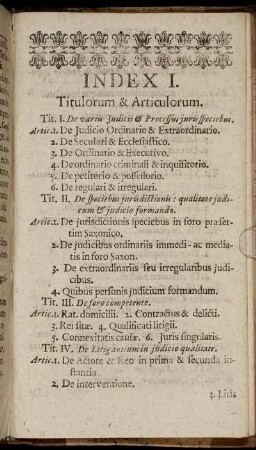 INDEX I.
Titulorum & Articulorum.
Tit. I. De variis Judicii & Processus juris speciebus.
Artic.1. De Judicio Ordinario & Extraordinario.
2. De Seculari & Ecclesiastico.
3. De Ordinario & Executivo.
4. De ordinario criminali & inquisitorio.
5. De petitorio & possessorio.
6. De regulari & irregulari.
Tit. II. De speciebus jurisdictionis: qualitate judi-
cum & judicio formando.
Artic.1. De jurisdictionis speciebus in foro præser-
tim Saxonico.
2. De judicibus ordinariis immedi- ac media-
tis in foro Saxon.
3. De extraordinariis seu irregularibus judi-
cibus.
4. Quibus personis judicium formandum.
Tit. III. De foro competente.
Artic.1. Rat. domicilii. 2. Contractus & delicti.
3. Rei sitæ. 4. Qualificati litigii.
5. Connexitatis causæ. 6. Juris singularis.
Tit. IV. De Litigantium in judicio qualitate.
Artic.1. De Actore & Reo in prima & secunda in-
stantia.
2. De interventione.
3. Litis